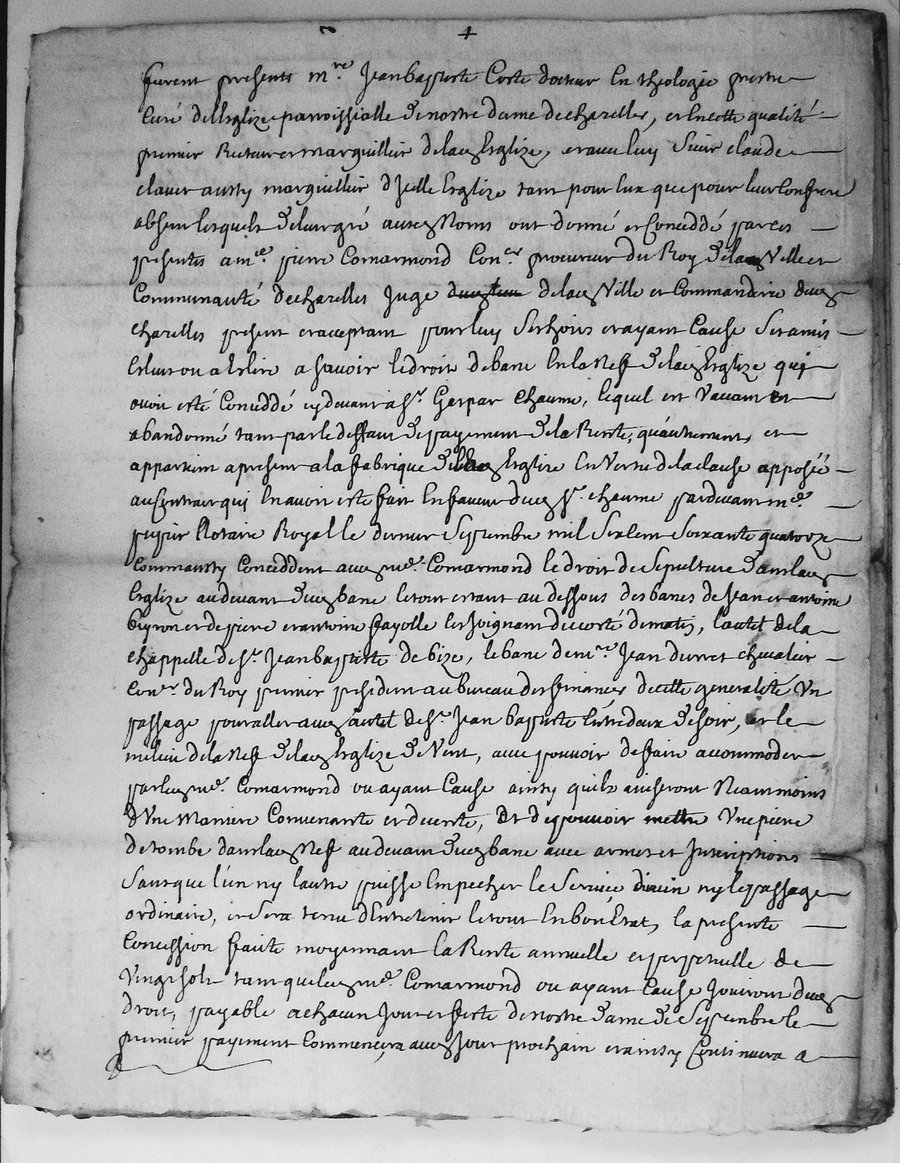 +
furent presents m.re Jean baptiste Coste docteur En theologie prestre
Curé de lEglize parroissialle de nostre dame de chazelles, et En cette qualité
premier Recteur et marguillier de lad Esglize, et avec luy Sieur claude
claver aussy marguillier d'Icelle Esglize tant pour Eux que pour leur Confrere
absent lesquels de leur gré ausd Noms ont donné et Conceddé par ces
presentes a m.e pierre Comarmond Con.er procureur du Roy de lad Ville et
Communauté de chazelles Juge de lad Ville et Commanderie dud
chazelles present et acceptant pour luy Ses hoirs et ayant Cause Ses amis
Esleus ou a Eslire a scavoir le droit de banc En la Neff de lad Esglize qui
avoit esté Conceddé cy devant a s.r Gaspar Chaume, lequel est Vaccant et
abandonné tant par le deffaut de payement de la Rente, qu'autrement, et
appartient a present a la fabrique de lad Esglize En Vertu de la clause apposée
au Contrat qui En avoit esté fait En faveur dud S.r chaume pardevant m.e
Notaire Royal le dernier Septembre mil Six Cent Soixante quatorze
Comm'aussy Conceddent aud m.e Comarmond le droit de Sepulture dans lad
Esglize au devant dud banc le tout estant au dessous des bancs de Jean et antoine
et de pierre et antoine fayolle Joignant de costé de matin, l'autel de la
chappelle de S.t Jean baptiste de bize, le banc de m.re Jean chevalier
Con.er du Roy premier president au bureau des finances de cette generalité Un
passage pour aller aud autel de S.t Jean baptiste Entre deux de soir, et le
milieu de la Neff de lad Esglize de Vent, avec pouvoir de faire accommoder
par led m.e Comarmond ou ayant Cause ainsy qu'ils aviseront Neantmoins
d'Une Maniere Convenante et decente, Et de pouvoir mettre Une pierre
de tombe dans lad Neff au devant dud banc avec armes et Inscriptions
Sans que l'un ny l'autre puisse Empecher le Service divin ny le passage
ordinaire, et Sera tenu d'Entretenir le tout En bon Estat, la presente
Concession faite moyennant la Rente annuelle et perpetuelle de
Vingt sols tant que led m.e Comarmond ou ayant Cause Jouiront dud
droit, payable a chacun Jour et feste de nostre dame de Septembre le
premier payement Commencera aud Jour prochain et ainsy Continuera a